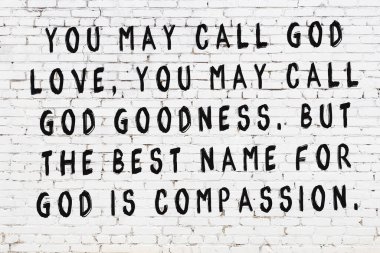 YOU MAY CALL GOD
LOVE, YOU MAY CALL
GOD GOODNESS. BUT
THE BEST NAME FOR
GOD IS COMPASSION.